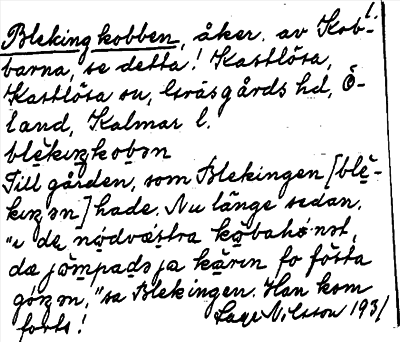 Blekingkobben, åker, av Kob-
barna, se detta! Kastlösa,
Kastlösa sn, Gräsgårds hd, Ö-
land, Kalmar l.
blèkıŋkobən
Till gården, som Blekingen [blè-
kıŋən] hade. Nu länge sedan.
"ı də nødvæstra kobahønət,
dæ jömpadə ja kärin fo fösta
góŋən," sa Blekingen. Han kom
forts! Lage Nilsson 1931